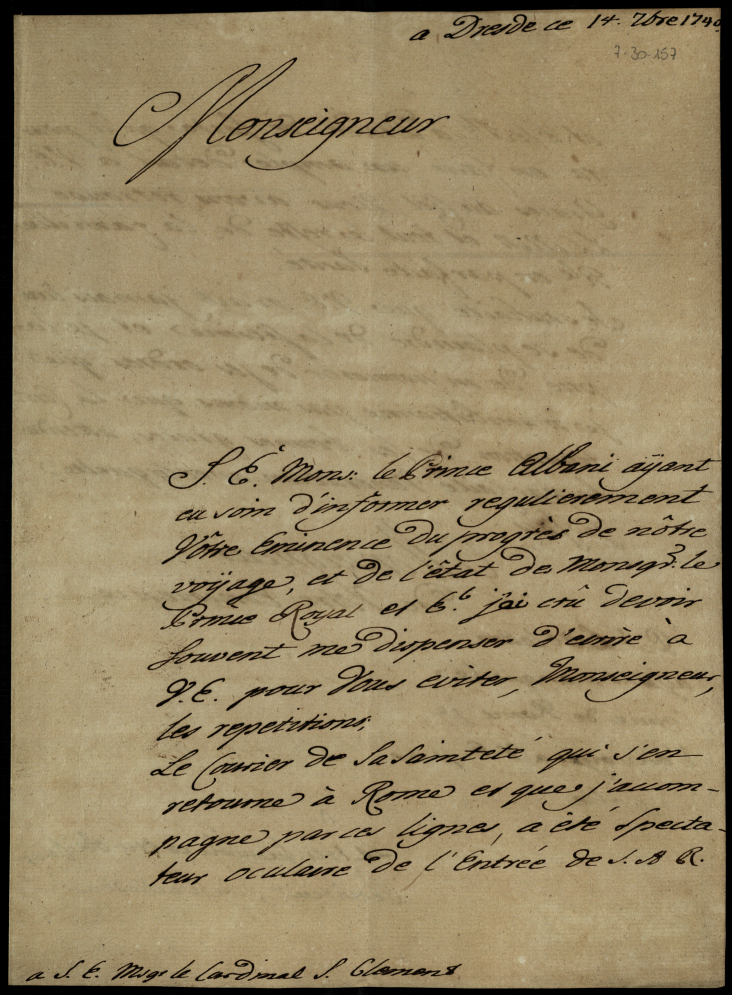 a Dresde ce 14. 7bre 1740.
7-30-157
Monseigneur
S. E. Mons: le Prince Albani aÿant
eu soin d'informer regulierement
Vôtre Eminence du progrès de nôtre
voÿage, et de l'êtat de Monsgr. le
Prince Royal et El. j'ai crû devoir
souvent me dispenser d'ecrire à
V. E. pour Vous eviter, Monseigneur,
les repetitions;
Le Courier de Sa Sainteté qui s'en
retourne à Rome et que j'accom-
pagne par ces lignes, a êté specta-
teur oculaire de l'Entrée de S. A R.
a S. E. Msgr le Cardinal S. Clement